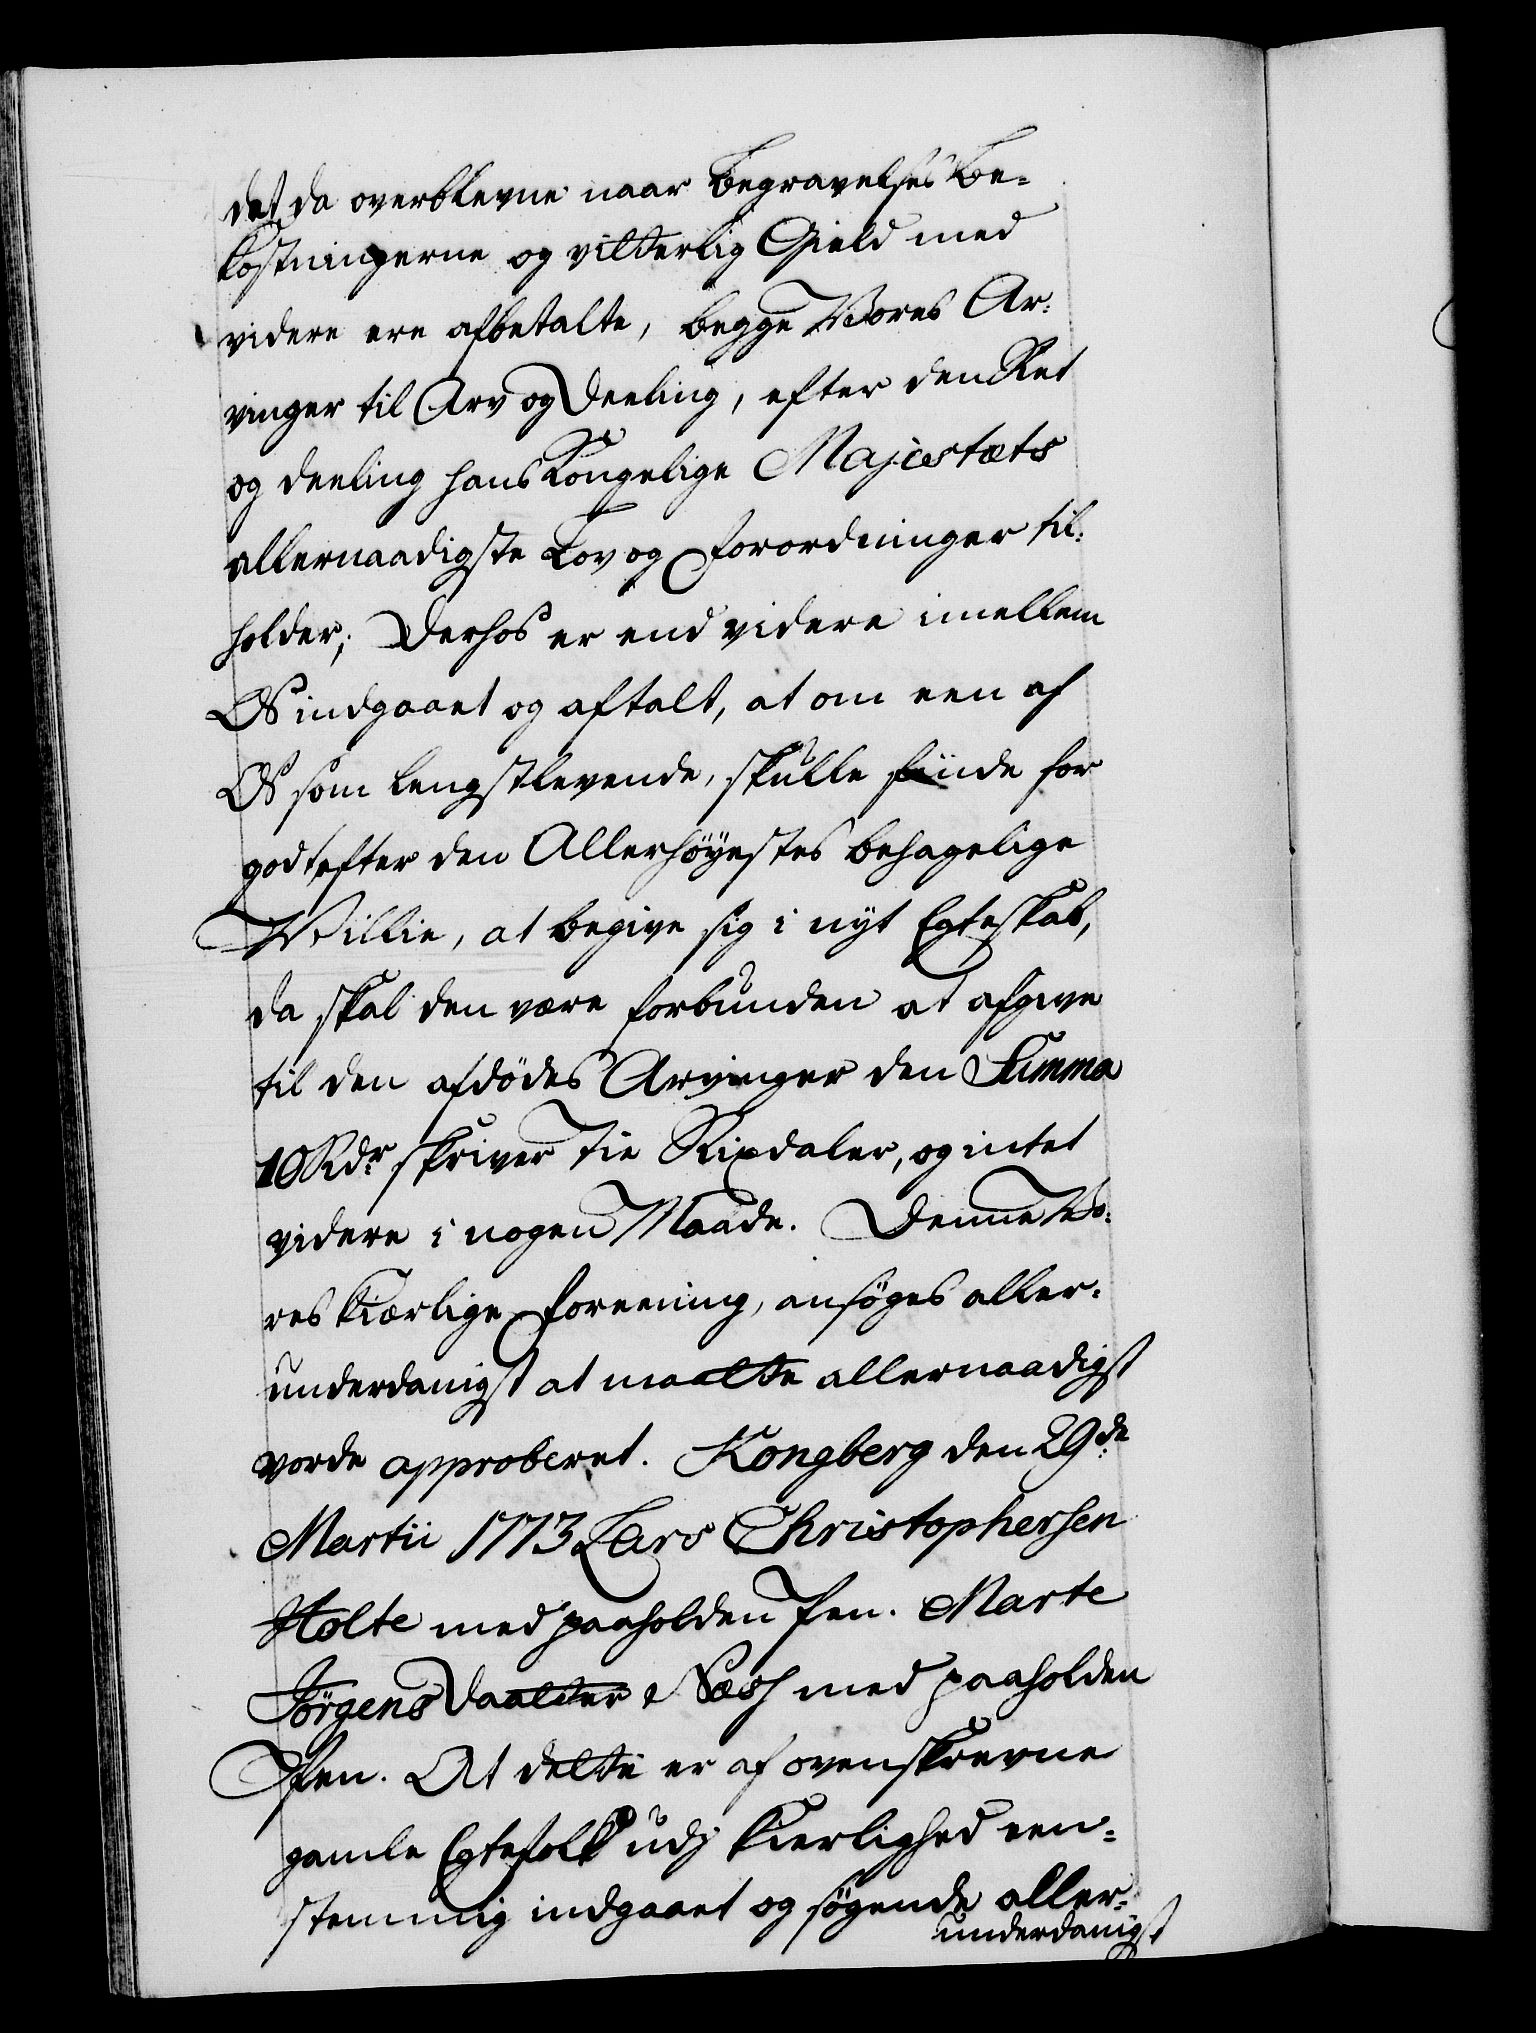 det da overblevne naar Begravelses Be-
kostningerne og vitterlig Gield med
videre ere afbetalte, begge Vores Ar-
vinger til Arv og Deeling, efter den Ret
og deeling hans Kongelige Majestæts
allernaadigste Lov og Forordninger til-
holder; Derhos er end videre imellem
Os indgaaet og aftalt, at om een af
Os som lengstlevende, skulle finde for
godt efter den Allerhöyestes behagelige
Villie, at begive sig i nyt Egteskab,
da skal den være forbunden at afgive
til den afdödes Arvinger den Summa
10 Rdr skriver Tie Rixdaler, og intet
videre i nogen Maade. Denne Vo-
res kiærlige Foreening, ansøges aller-
underdanigst at maatte allernaadigst
vorde approberet. Kongberg den 29de
Martii 1773 Lars Christophersen
Holte med paaholden Pen. Marte
Jörgens Daatter Næss med paaholden
Pen. At dette er af ovenskrevne
gamle Egtefolk udj Kierlighed een-
stemmig indgaaet og søgende aller-
underdanigst